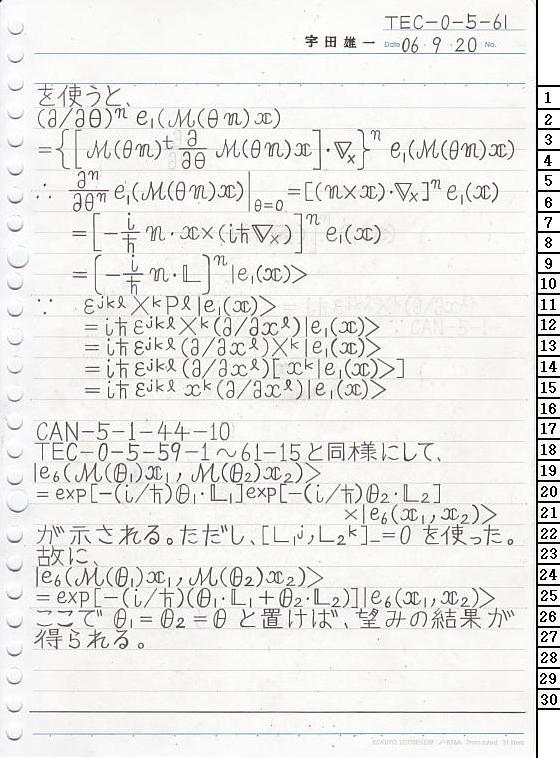 TEC-0-5-61
宇田雄一 Date 06・9・20 No.
を使うと、
(∂/∂θ)ⁿ e₁(ℳ(θ𝕟)𝕩)
={[ℳ(θ𝕟)ᵗ ∂/∂θ ℳ(θ𝕟)𝕩]・∇ₓ}ⁿ e₁(ℳ(θ𝕟)𝕩)
∴ ∂ⁿ/∂θⁿ e₁(ℳ(θ𝕟)𝕩)|θ=0 =[(𝕟×𝕩)・∇ₓ]ⁿ e₁(𝕩)
=[-i/ħ 𝕟・𝕩×(iħ∇ₓ)]ⁿ e₁(𝕩)
=[-i/ħ 𝕟・𝕃]ⁿ|e₁(𝕩)>
∵ εʲᵏˡXᵏPˡ|e₁(𝕩)>
=iħεʲᵏˡXᵏ(∂/∂xˡ)|e₁(𝕩)>
=iħεʲᵏˡ(∂/∂xˡ)Xᵏ|e₁(𝕩)>
=iħεʲᵏˡ(∂/∂xˡ)[xᵏ|e₁(𝕩)>]
=iħεʲᵏˡxᵏ(∂/∂xˡ)|e₁(𝕩)>
CAN-5-1-44-10
TEC-0-5-59-1～61-15と同様にして、
|e₆(ℳ(θ₁)𝕩₁, ℳ(θ₂)𝕩₂)>
=exp[-(i/ħ)θ₁・𝕃₁]exp[-(i/ħ)θ₂・𝕃₂]
×|e₆(𝕩₁,𝕩₂)>
が示される。ただし、[L₁ʲ,L₂ᵏ]₋=0 を使った。
故に、
|e₆(ℳ(θ₁)𝕩₁, ℳ(θ₂)𝕩₂)>
=exp[-(i/ħ)(θ₁・𝕃₁+θ₂・𝕃₂)]|e₆(𝕩₁,𝕩₂)>
ここで θ₁=θ₂=θ と置けば、望みの結果が
得られる。
1
2
3
4
5
6
7
8
9
10
11
12
13
14
15
16
17
18
19
20
21
22
23
24
25
26
27
28
29
30